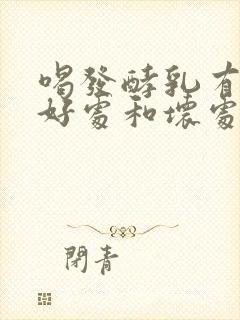 喝發酵乳有
好處和壞處
閉青